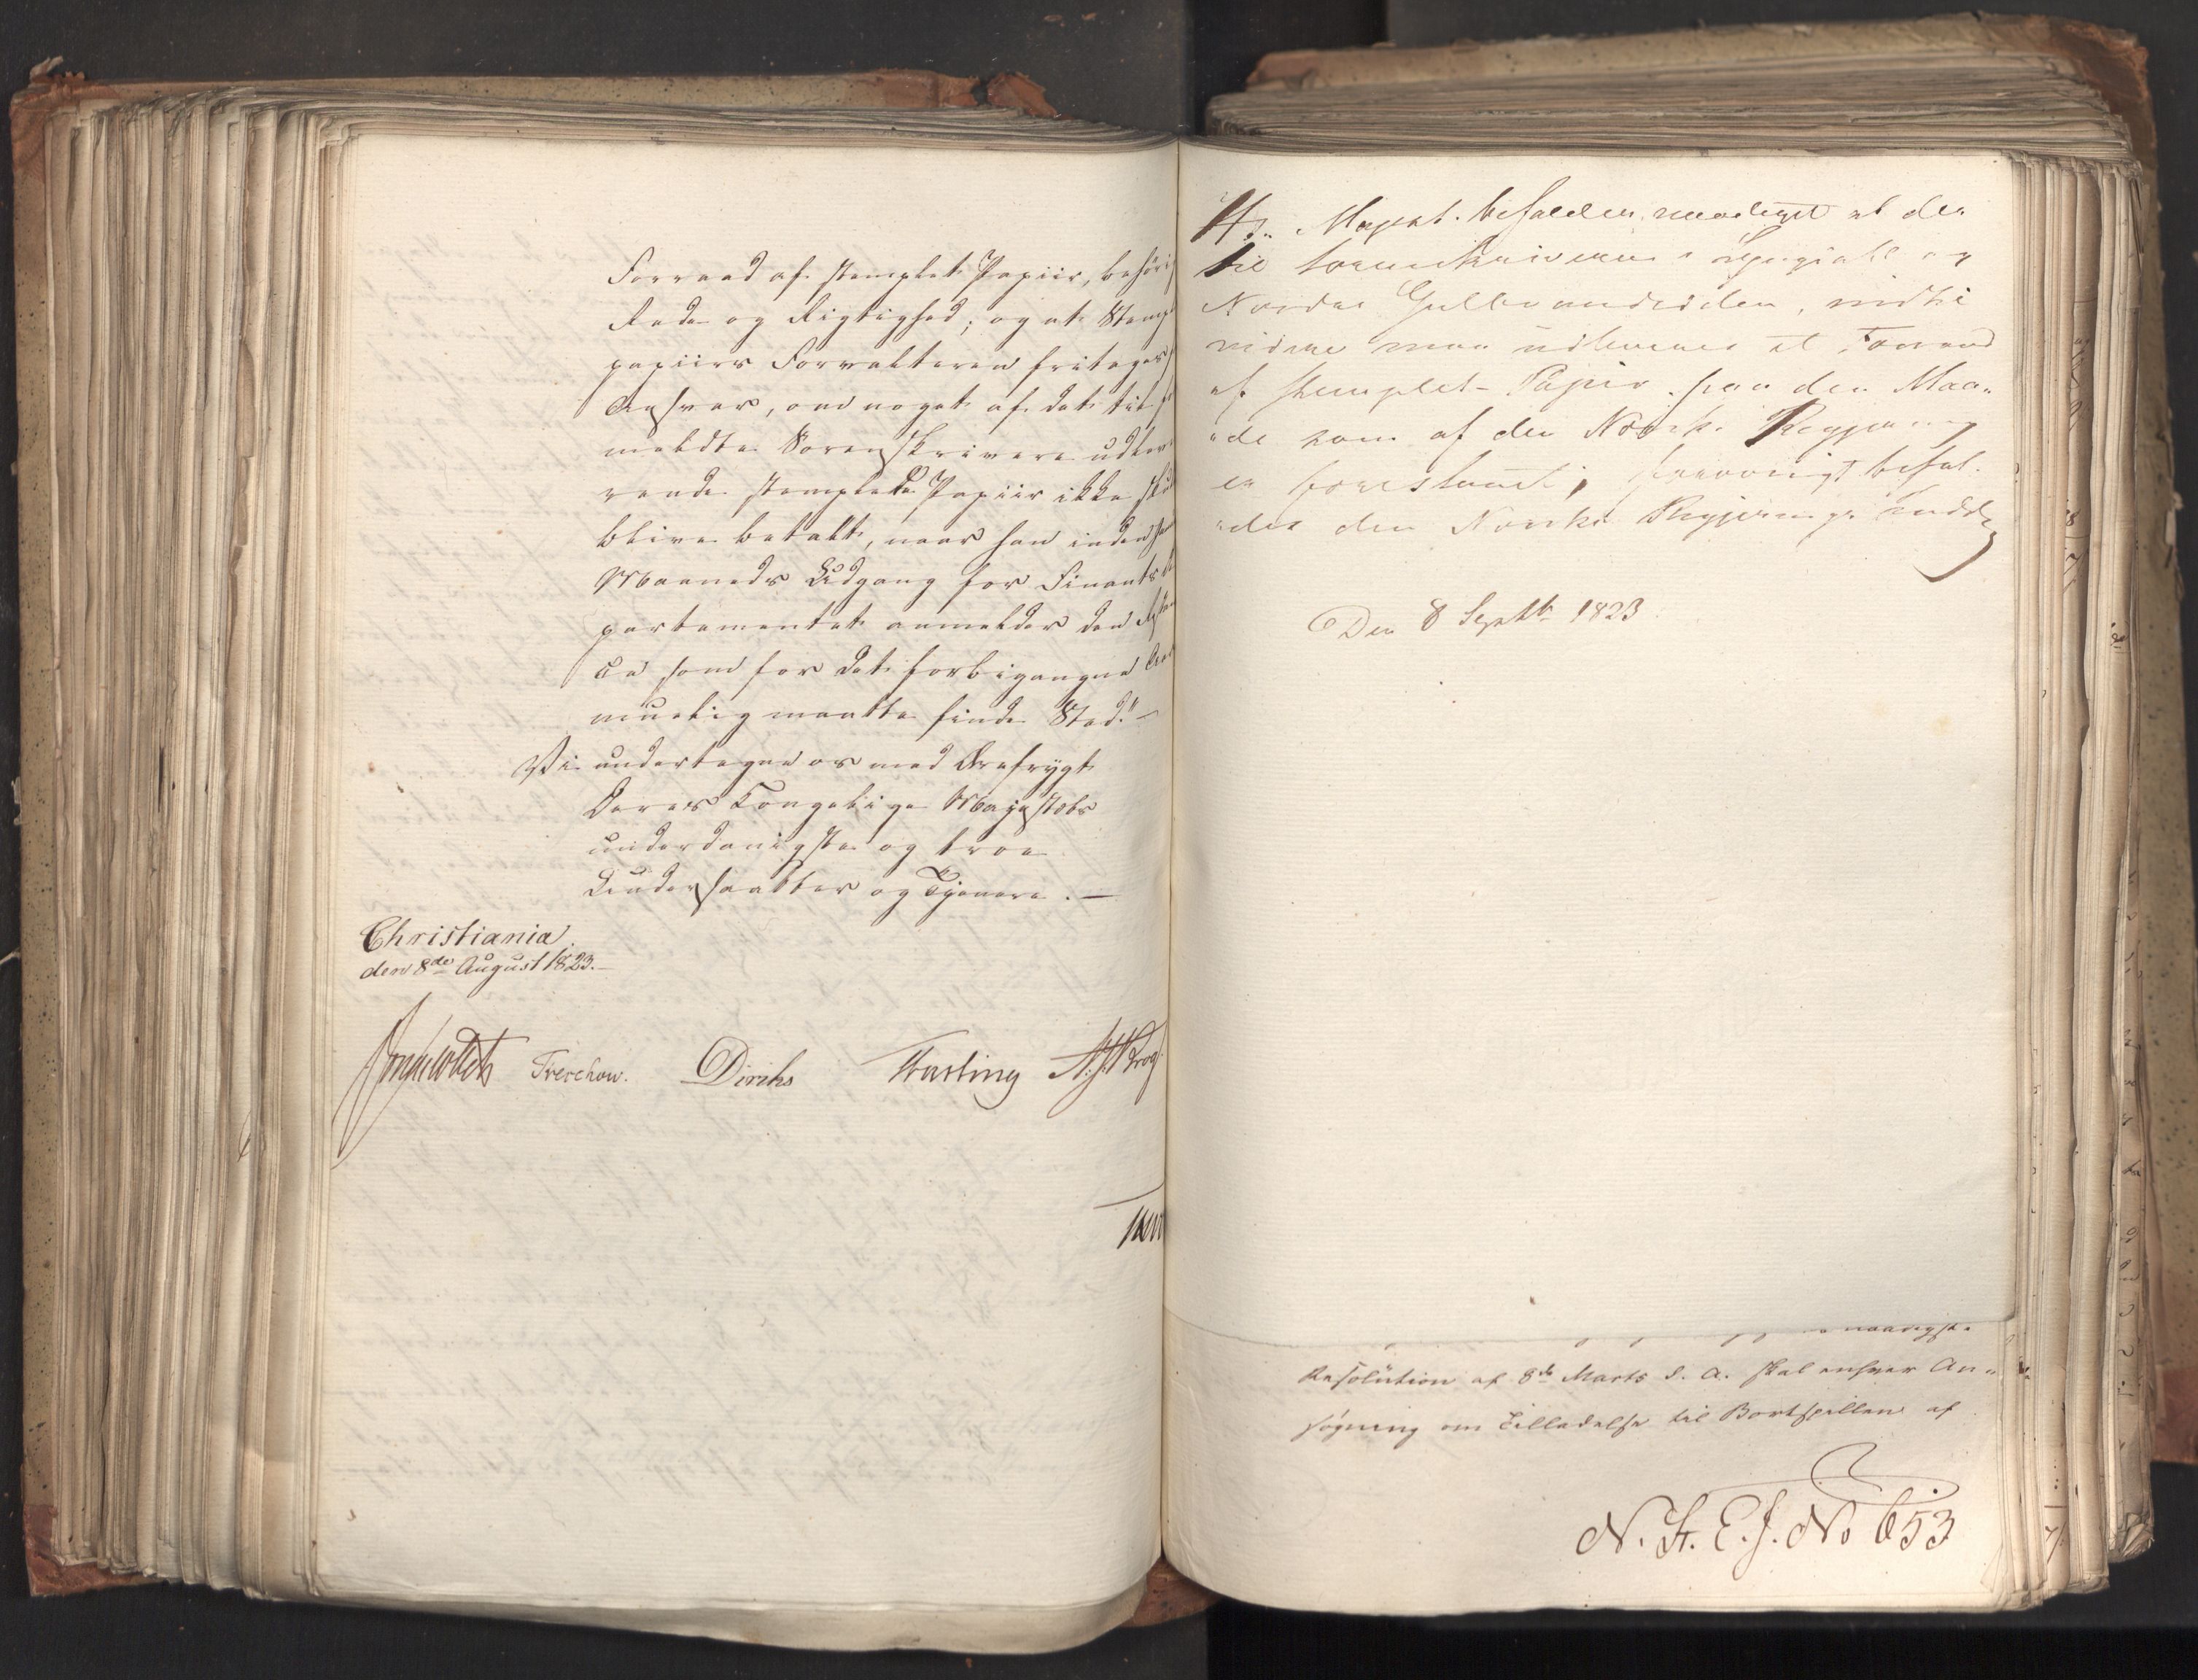 Forraad af stemplet Papiir, behörig
Rede og Rigtighed; og at Stempl
papiirs Forvalteren fritages
Ansvar, om noget af det til
meldte Sorenskrivere udleve
rende stemplede Papiir ikke sku
blive betalt, naar han inden
Maaneds Udgang for Finants
partementet anmelder den
ce som for det forbigangne
muelig maatte finde Sted." —
Vi undertegne os med Ærefrygt
Deres Kongelige Majestæts
underdanigste og troe
Undersaatter og Tjenere. —
Christiania
den 8de August 1823. —
Treschow. Diriks Fasting
Hs. Majest. befaeler naadigst at der
til Sorenskriverne i og
Nordre Gulbrandsdalen, indtil
videre maa udleveres et Forraad
af stemplet Papir paa den Maa-
-de som af den Norske Regjering
er forestaaet,
den Norske Regjerings Indst
Den 8 Septbr 1823.
naadigste
Resolution af 8de Marts d. A. skal enhver An-
søgning om Tilladelse til Bortspillen af
N. St. E. J. No 653